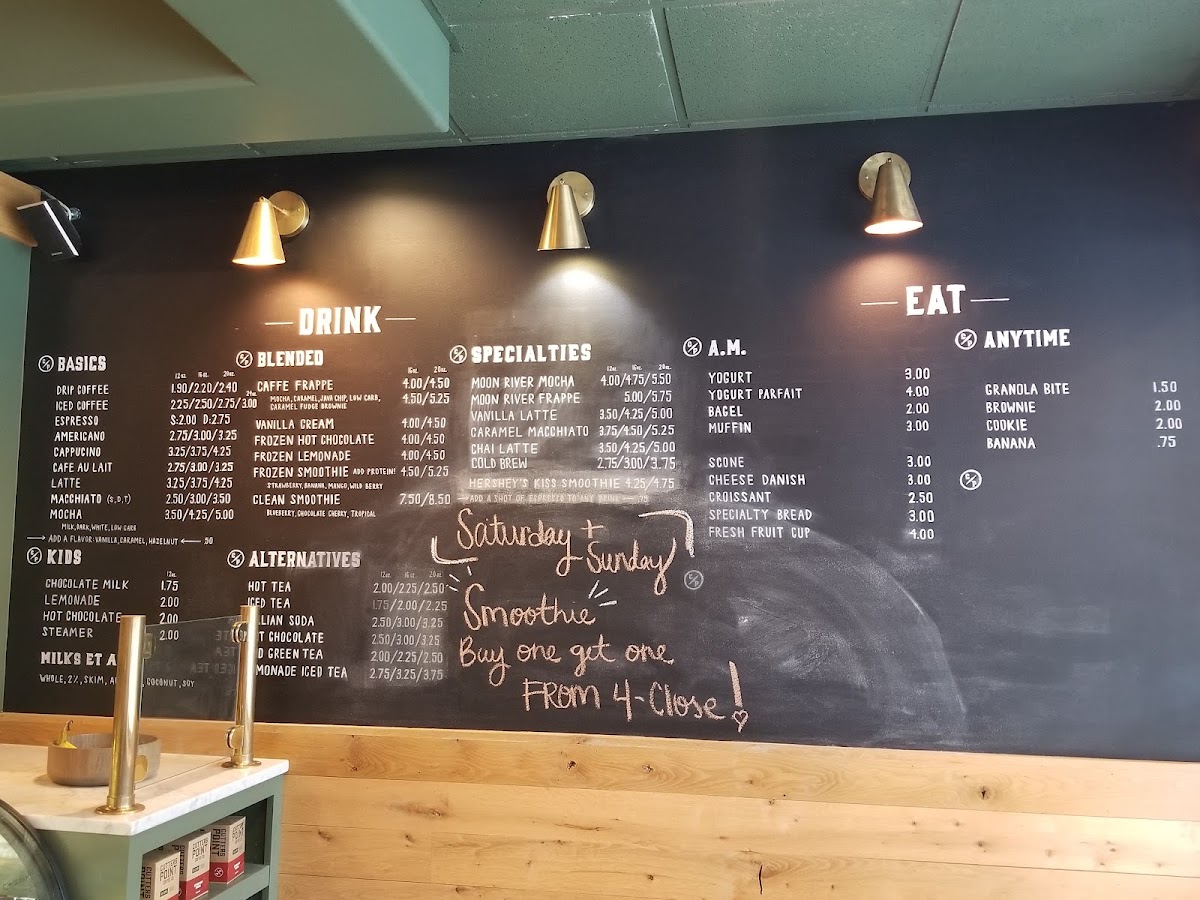 DRINK
BASICS
12oz. 16oz. 20oz.
DRIP COFFEE 1.90/2.20/2.40
24oz.
ICED COFFEE 2.25/2.50/2.75/3.00
ESPRESSO S:2.00 D:2.75
AMERICANO 2.75/3.00/3.25
CAPPUCINO 3.25/3.75/4.25
CAFE AU LAIT 2.75/3.00/3.25
LATTE 3.25/3.75/4.25
MACCHIATO (S,D,T) 2.50/3.00/3.50
MOCHA 3.50/4.25/5.00
MILK, DARK, WHITE, LOW CARB
ADD A FLAVOR: VANILLA, CARAMEL, HAZELNUT .50
KIDS
12oz.
CHOCOLATE MILK 1.75
LEMONADE 2.00
HOT CHOCOLATE 2.00
STEAMER 2.00
MILKS ET A
WHOLE, 2%, SKIM, COCONUT, SOY
BLENDED
16oz. 20oz.
CAFFE FRAPPE 4.00/4.50
MOCHA, CARAMEL, JAVA CHIP, LOW CARB, 4.50/5.25
CARAMEL FUDGE BROWNIE
VANILLA CREAM 4.00/4.50
FROZEN HOT CHOCOLATE 4.00/4.50
FROZEN LEMONADE 4.00/4.50
FROZEN SMOOTHIE ADD PROTEIN! 4.50/5.25
STRAWBERRY, BANANA, MANGO, WILD BERRY
CLEAN SMOOTHIE 7.50/8.50
BLUEBERRY, CHOCOLATE CHERRY, TROPICAL
ALTERNATIVES
12oz. 16oz. 20oz.
HOT TEA 2.00/2.25/2.50
ICED TEA 1.75/2.00/2.25
LIAN SODA 2.50/3.00/3.25
T CHOCOLATE 2.50/3.00/3.25
D GREEN TEA 2.00/2.25/2.50
MONADE ICED TEA 2.75/3.25/3.75
SPECIALTIES
12oz. 16oz. 20oz.
MOON RIVER MOCHA 4.00/4.75/5.50
MOON RIVER FRAPPE 5.00/5.75
VANILLA LATTE 3.50/4.25/5.00
CARAMEL MACCHIATO 3.75/4.50/5.25
CHAI LATTE 3.50/4.25/5.00
COLD BREW 2.75/3.00/3.75
HERSHEY'S KISS SMOOTHIE 4.25/4.75
ADD A SHOT OF ESPRESSO TO ANY DRINK .75
Saturday +
Sunday
Smoothie
Buy one get one
FROM 4-Close!
EAT
A.M.
YOGURT 3.00
YOGURT PARFAIT 4.00
BAGEL 2.00
MUFFIN 3.00
SCONE 3.00
CHEESE DANISH 3.00
CROISSANT 2.50
SPECIALTY BREAD 3.00
FRESH FRUIT CUP 4.00
ANYTIME
GRANOLA BITE 1.50
BROWNIE 2.00
COOKIE 2.00
BANANA .75
CUTTERS
POINT
CUTTERS
POINT